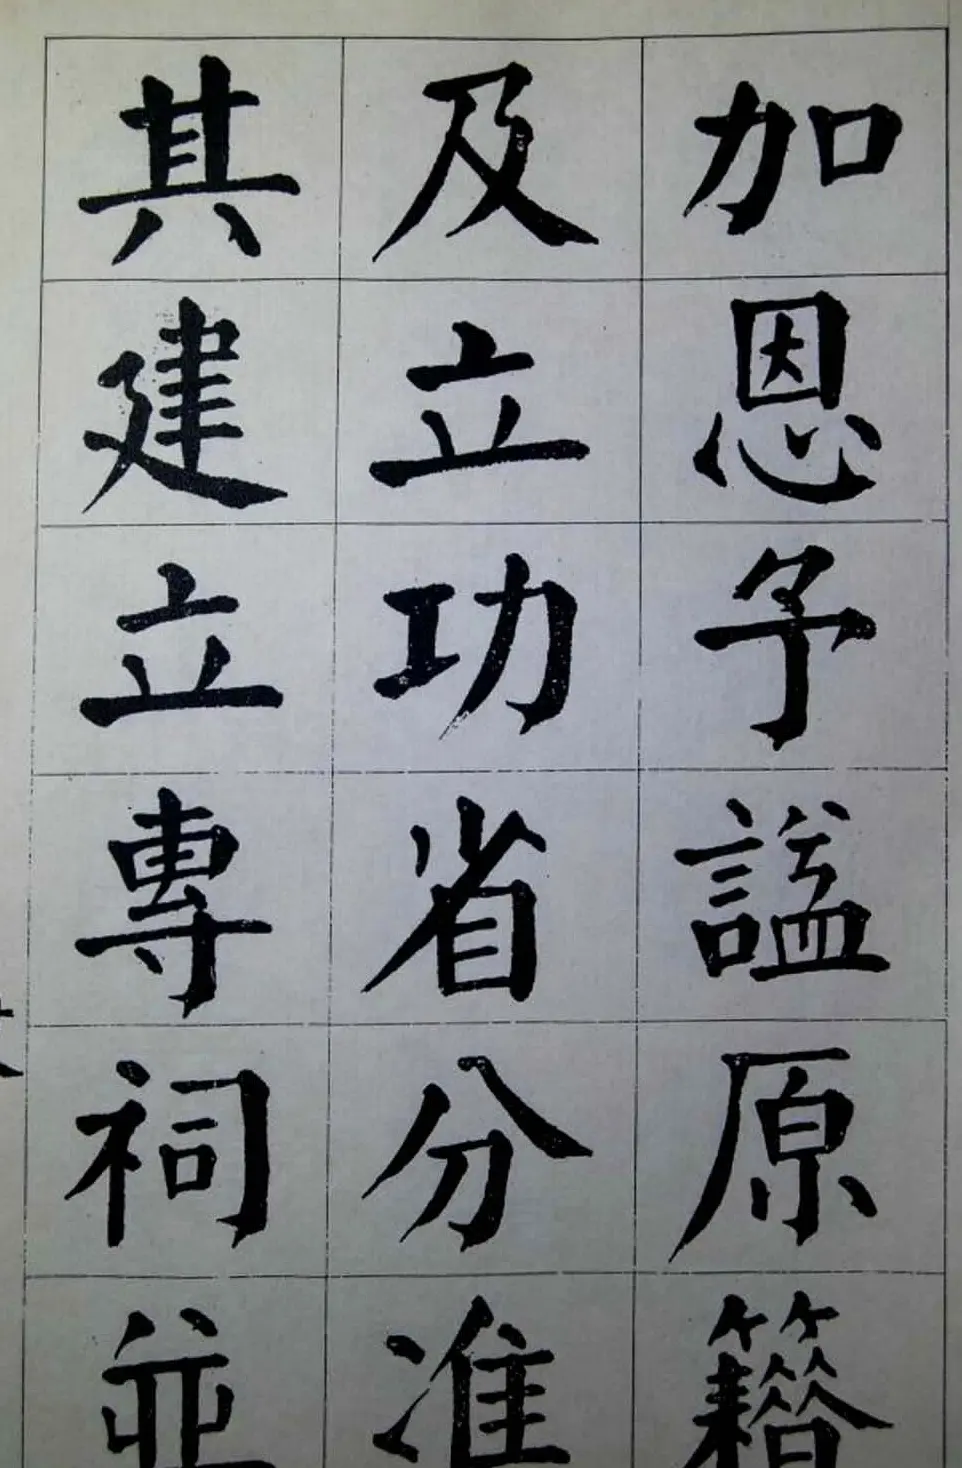 加恩予謚原籍
及立功省分准
其建立專祠並